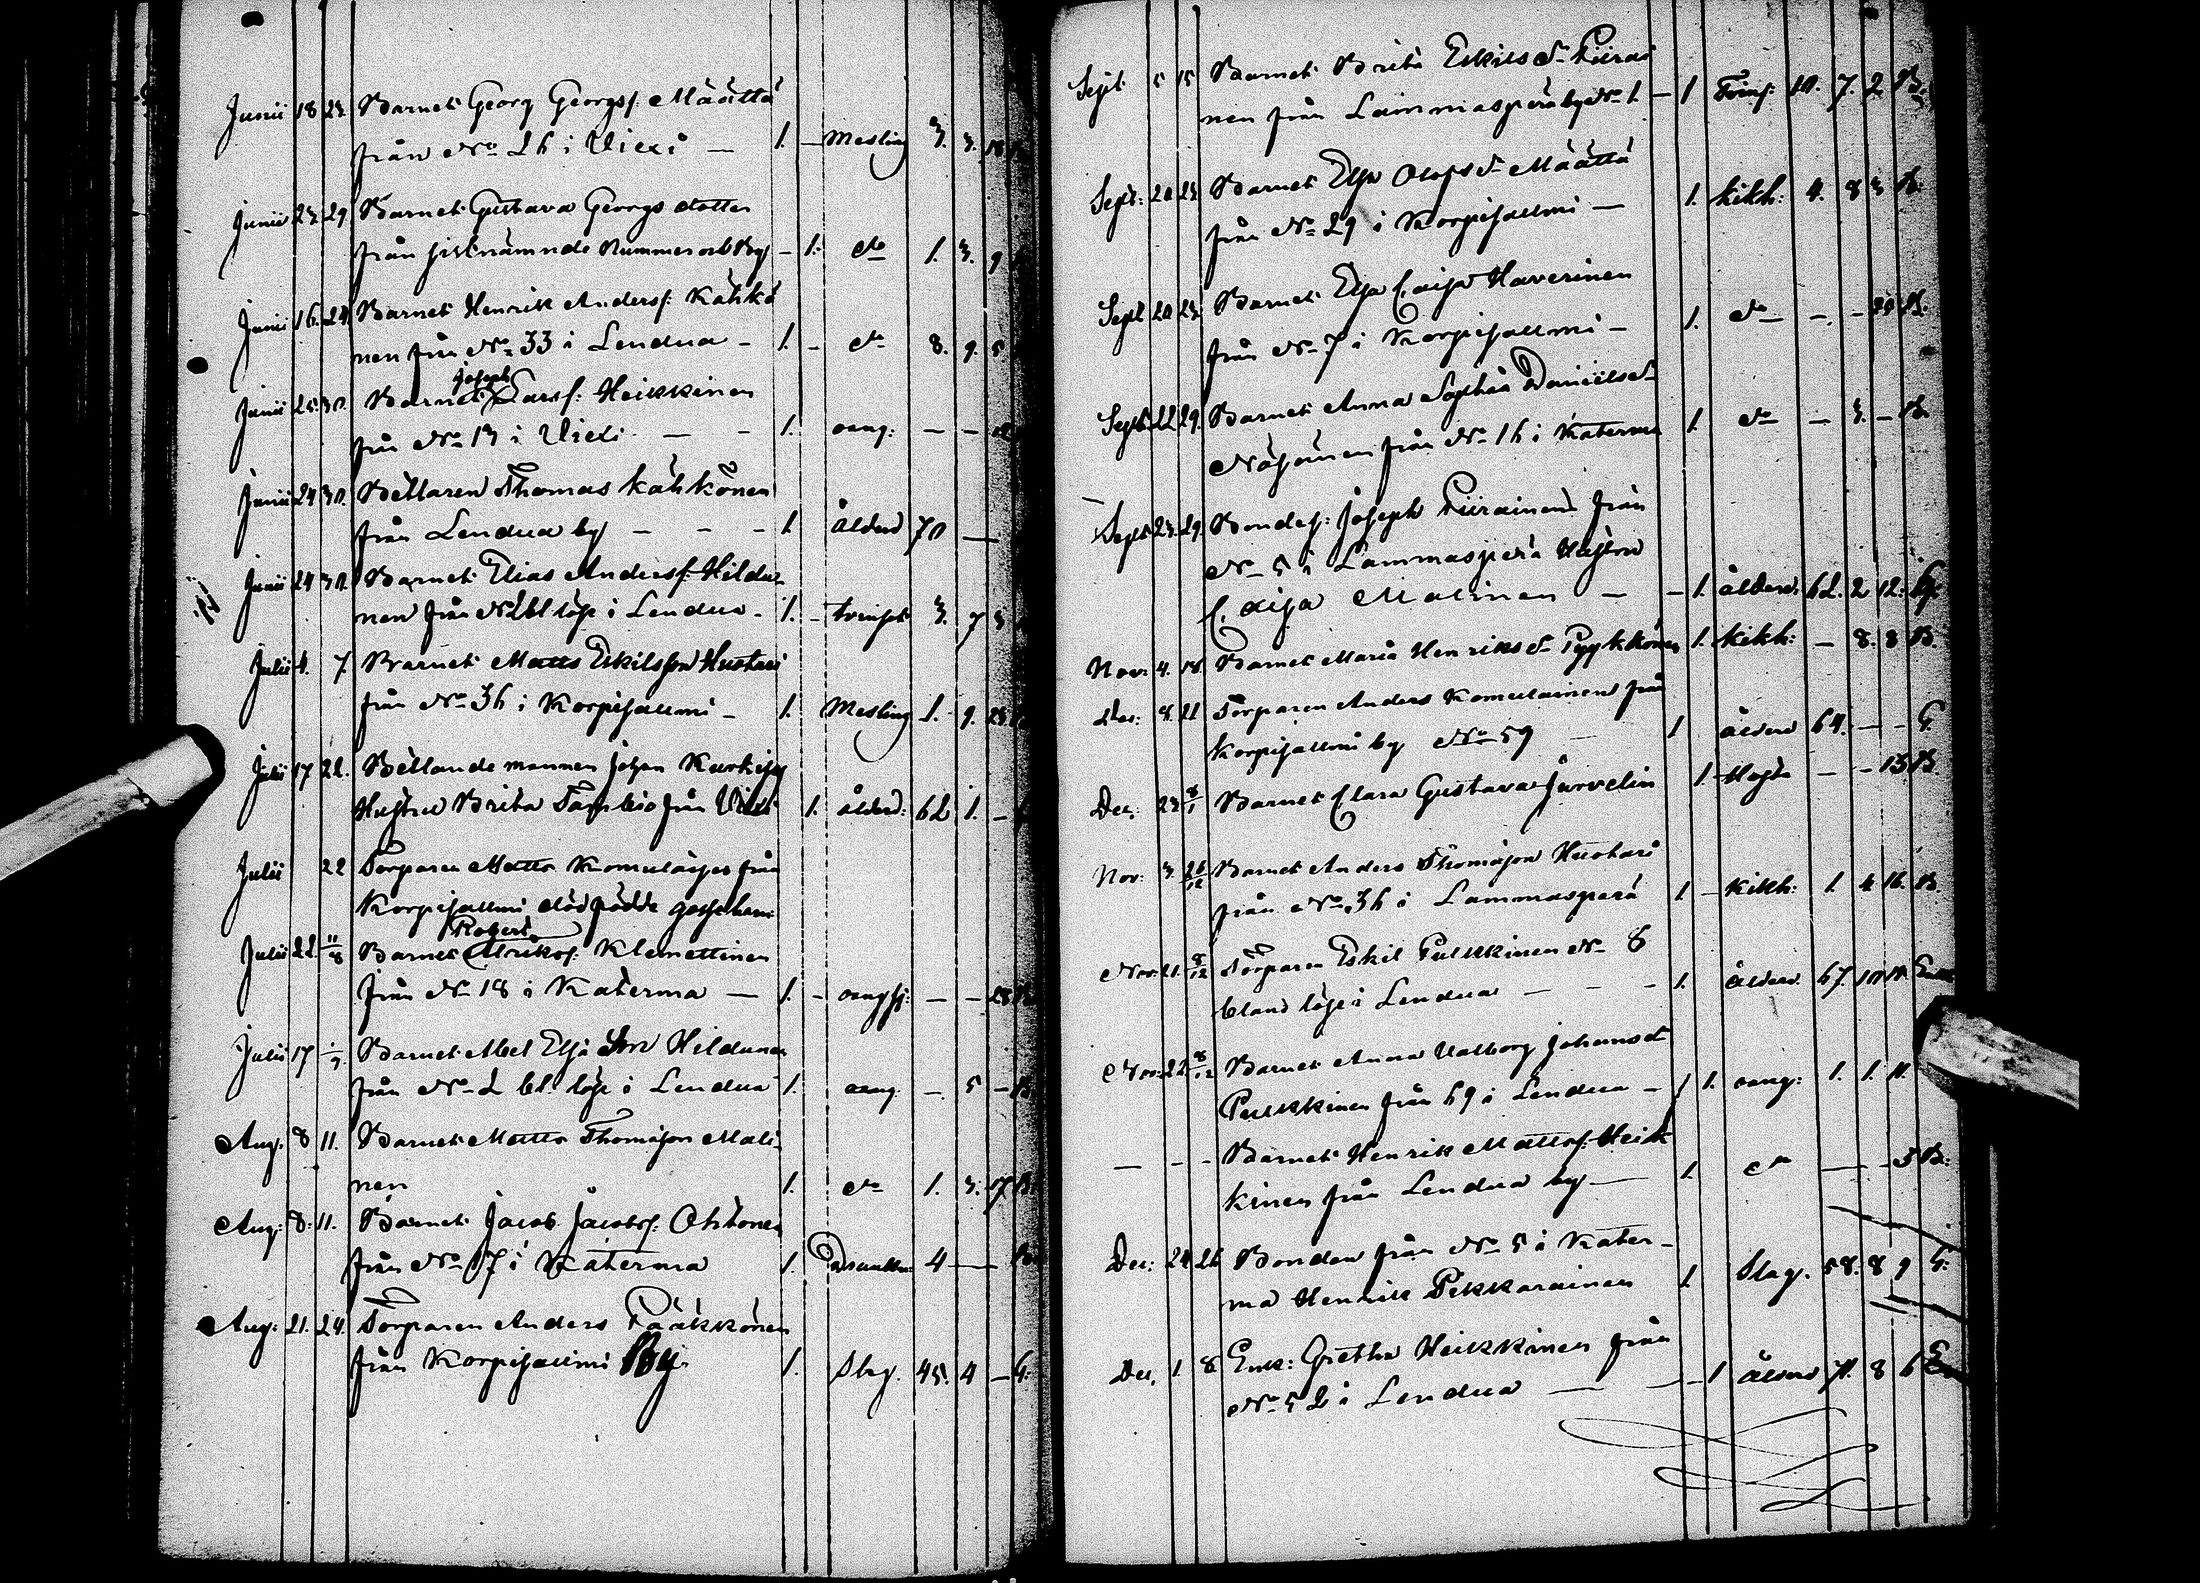 Junii 18 23 Barnet Georg Georgs: Määttä
från No 26 i Viexi — 1. — Mesling 3. 3. 18
Junii 23 29 Barnet Gustava Georgs dotter
från sistnämnde Nummer och By — 1. do 1. 3. 9
Junii 16. 24 Barnet Henrik Anders: Kähkö
nen från No 33 i Lendua — 1. — do 8. 9. 5
Joseph
Junii 25 30. Barnet Lars: Heikkinen
från No 13 i Viexi — — 1. oang: — —
Junii 24 30. Bettlaren Thomas Kähkönen
från Lendua by — — — 1 ålderd 70 —
Junii 24 30. Barnet Elias Anders: Hildu-
nen från No 2 bl löse i Lendua — 1. — 3. 7 3
Julii 4. 7. Barnet Matts Eskilsson Huotari
från No 36 i Korpisallmi — 1. Mesling 1. 9. 23
Julii 17 22. Bettlande mannen Johan Kurki
Hustru Brita Tambio från Viexi 1. ålderd: 62 1. —
Julii 22 Torparen Matts Komulaises från
Korpisallmi dödfödde gossebarn
Robert
Julii 22. 11/8 Barnet Ulriks: Klemettinen
från No 18 i Katerma — 1. — oang sj: — — 28 B.
Julii 17 Barnet Abel Elja Son Hildunen
från No 2 bl. löse i Lendua 1. oang. — 5 — B
Aug. 8 11. Barnet Matts Thomasson Mali-
nen 1. do 1. 3. 17 B.
Aug: 8. 11. Barnet Jacob Jacobs: Ohtonen
från No 17 i Katerma 1. 4 — — B
Aug: 21. 24. Torparen Anders Pääkkönen
från Korpisallmi By. 1. Slag. 45. 4 — G.
Sept. 5 15 Barnet Brita Eskils d. Piirai
nen från Lammasperä by No 1. — 1 10. 7. 2 B.
Sept: 20 23 Barnet Elja Olofs d. Määttä
från No 29 i Korpisallmi — 1. kikh: 4. 8 3 B.
Sept 20 23 Barnet Elja Caisa Haverinen
från No 7 i Korpisallmi — 1. do — — B.
Sept 22 29. Barnet Anna Sophia Daniels d.
Näjänen från No 16 i Katerma 1. do — 3. — B.
Sept 23 29 Bondes: Joseph Piirainens från
No 5 i Lammasperä Hustru
Caisa Malinen — — 1. ålderd. 62. 2 12. G.
Nov: 4. 18. Barnet Maria Henriks d. Pyykkönen 1. kikh: — 8. 8 B.
Dec: 8. 21 Torparen Anders Komulainen från
Korpisallmi by No 59 — 1 ålderd 64. — — G.
Dec. 23 6/1 Barnet Clara Gustava Järvelin 1. Hosta — — 13 B.
Nov: 3. 26/12 Barnet Anders Thomasson Huotari
från No 36 i Lammasperä 1 — kikh: 1. 4. 16. B.
Nov: 21. 8/12 Torparen Eskil Pulkkinen No 8
bland löse i Lendua — — — 1. ålderd. 67. 10 11.
Nov: 22 8/12 Barnet Anna Valborg Johans d.
Pulkkinen från 69 i Lendua — 1. oang: 1. 1. 11.
— — — Barnet Henrik Matts: Heik
kinen från Lendua by — 1. do — — 3 B.
Dec: 24 26 Bonden från No 5 i Kater-
ma Henrik Pekkarainen 1 Slag. 58. 8 9 G.
Dec. 1. 8 Enk: Gretha Heikkinen från
No 52 i Lendua — — 1 ålderd 71. 8 6 En